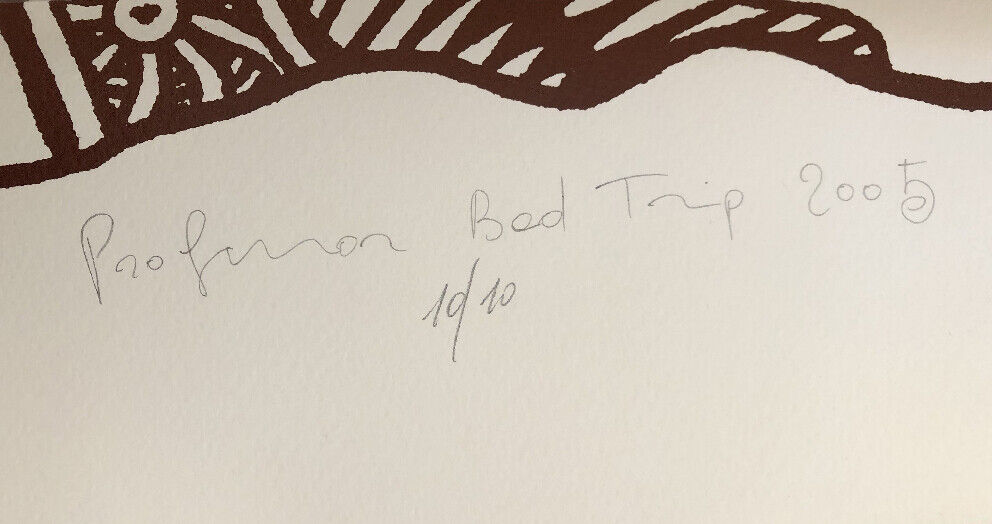 Professor Bad Trip 2005
10/10